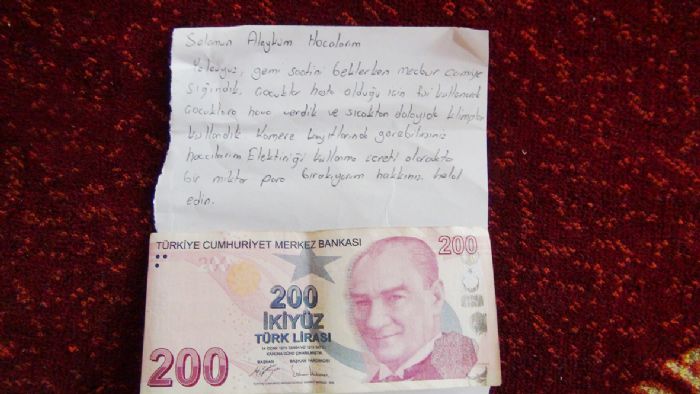 Selamun Aleyküm Hocalarım
Yolcuyuz, gemi saatini beklerken mecbur camiye
sığındık. Çocuklar hasta olduğu için fişi kullanarak
çocuklara hava verdik ve sıcaktan dolayıda klimaları
kullandık Kamera kayıtlarında görebilirsiniz
hocalarım Elektiriği kullanma ücreti olarakta
bir miktar para bırakıyorum hakkınızı helal
edin.
TÜRKİYE CUMHURİYET MERKEZ BANKASI
200
200
İKİYÜZ
TÜRK LİRASI
14 OCAK 1970 TARİH VE 1211 SAYILI
KANUNA GÖRE ÇIKARILMIŞTIR.
BAŞKAN BAŞKAN YARDIMCISI
200